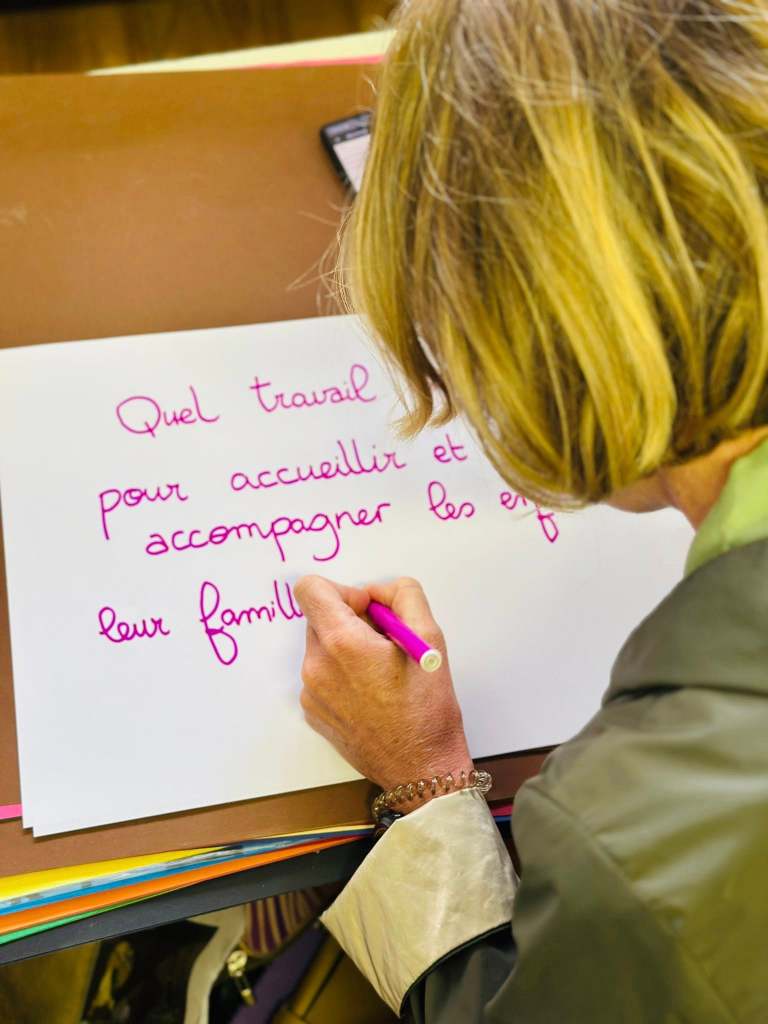 Quel travail
pour accueillir et
accompagner les enf
leur famill